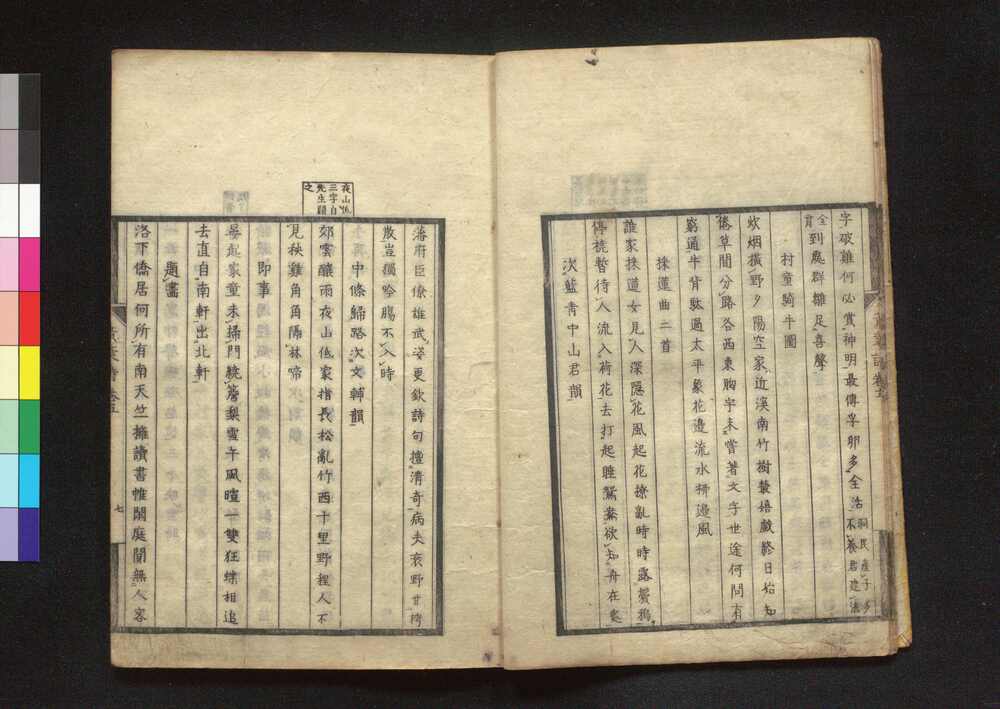 字破雞何必賞神明最傳孚卵多全活嗣民產子多
不養君建法
全到處群雛足喜聲
育
村童騎牛圖
炊烟橫野夕陽空家近溪南竹樹叢嬉戲終日始知
倦草間分路各西東胸宇未嘗著文字世途何問有
窮通牛背馱過太平象花邊流水柳邊風
採蓮曲二首
誰家採蓮女見人深隱花風起花撩亂時時露鬢鴉
停橈暫待人流入荷花去打起睡鴛鴦欲知舟在處
次藍青中山君韻
藩府臣僚雄武姿更欽詩句擅清奇病夫衰野甘
散豈獨吟腸不入時
中條歸路次文韓韻
郊雲釀雨夜山低家指長松亂竹西十里野程人不
見秧雞角角隔林啼
即事
晏起家童未掃門繞簷梨雪午風暄一雙狂蝶相追
去直自南軒出北軒
題畫
洛下僑居何所有南天竺擁讀書帷閑庭閴無人客
夜山低
三字自
先生願
之
七